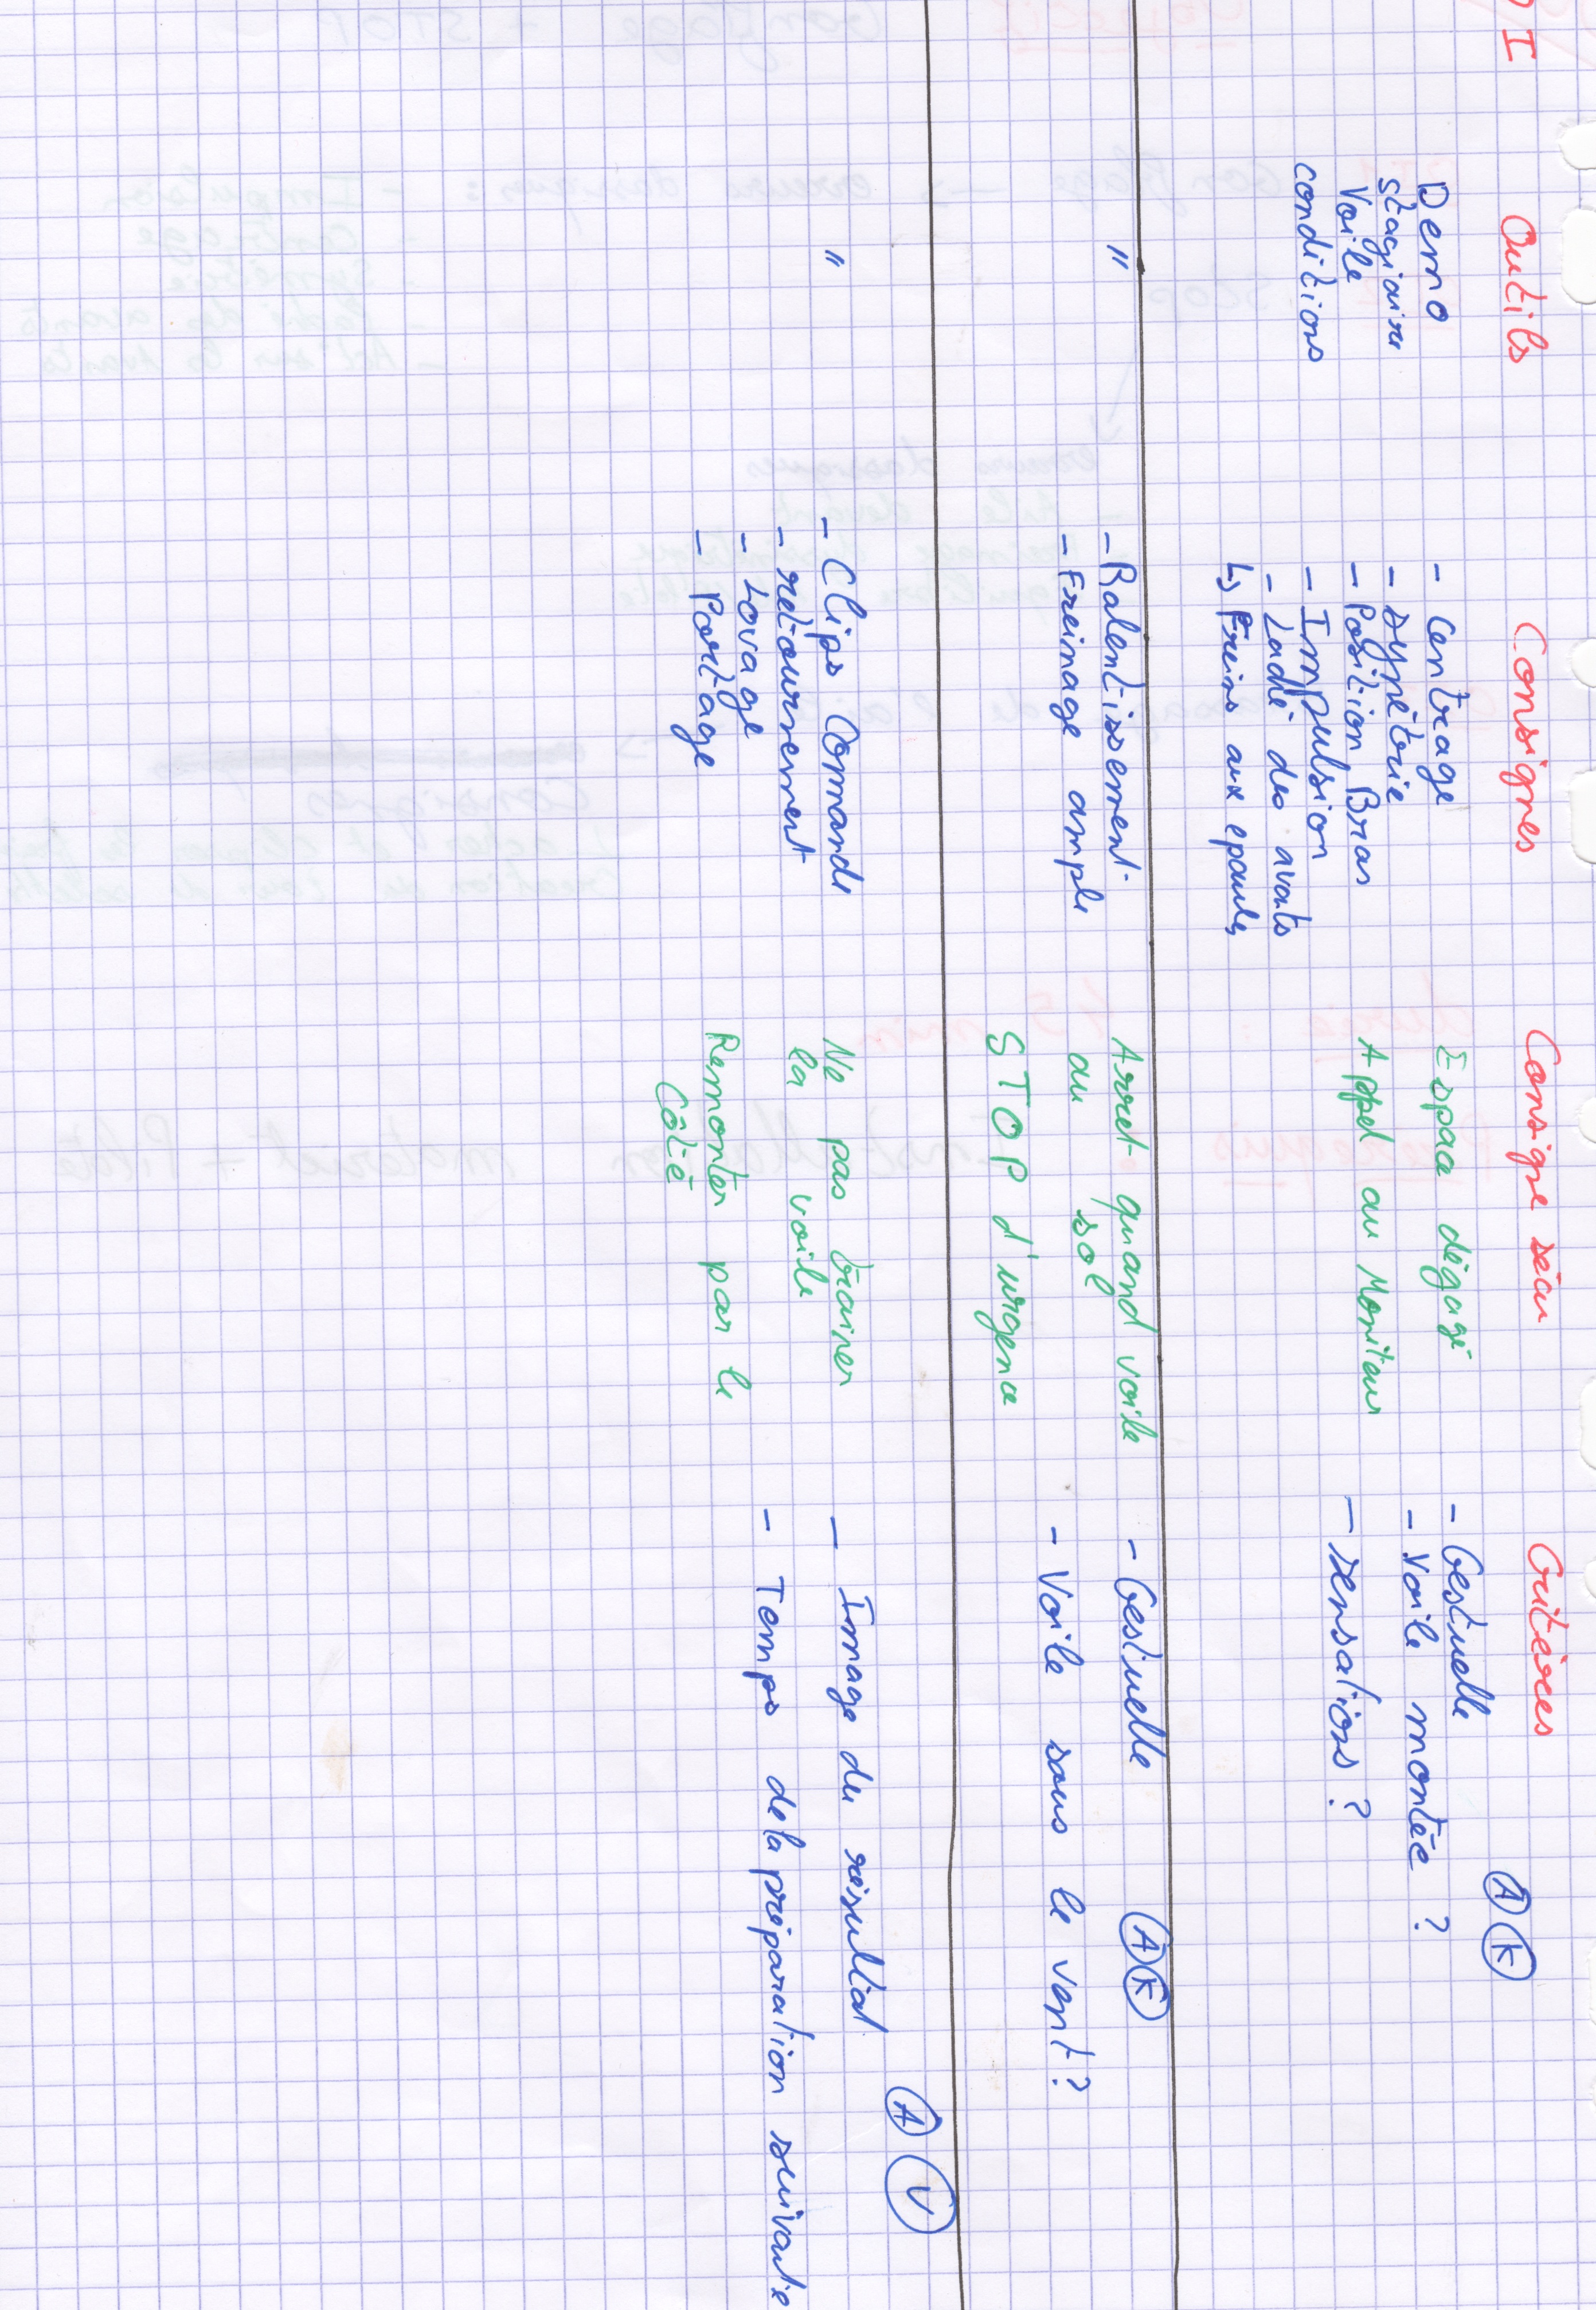 I Outils Consignes Consigne sécu Critères
A K
Demo
stagiaire
Voile
conditions
- Centrage
- symétrie
- Position Bras
- Impulsion
- Laché des avants
↳ Freins aux epaules
Espace dégagé
Appel au Moniteur
- Gestuelle
- Voile montée ?
- sensations ?
"
- Ralentissement
- Freinage ample
Arret quand voile
au sol
STOP d'urgence
- Gestuelle
A K
- Voile sous le vent ?
"
- Clips Commande
- retournement
- Lovage
- Portage
Ne pas trainer
la voile
Remonter par le
Côté
A V
- Image du résultat
- Temps de la préparation suivante